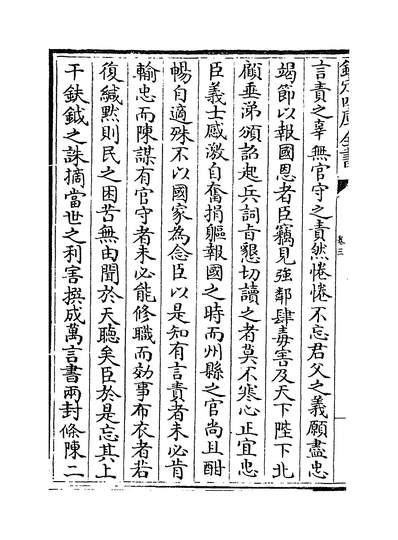 欽定四庫全書
卷三
言責之辜無官守之責然惓惓不忘君父之義願盡忠
竭節以報國恩者臣竊見強鄰肆毒害及天下陛下北
顧垂涕頒詔起兵詞旨懇切讀之者莫不寒心正宜忠
臣義士感激自奮捐軀報國之時而州縣之官尚且酣
暢自適殊不以國家為念臣以是知有言責者未必肯
輸忠而陳謀有官守者未必能修職而効事布衣者若
復緘默則民之困苦無由聞於天聽矣臣於是忘其上
干鈇鉞之誅摘當世之利害撰成萬言書兩封條陳二